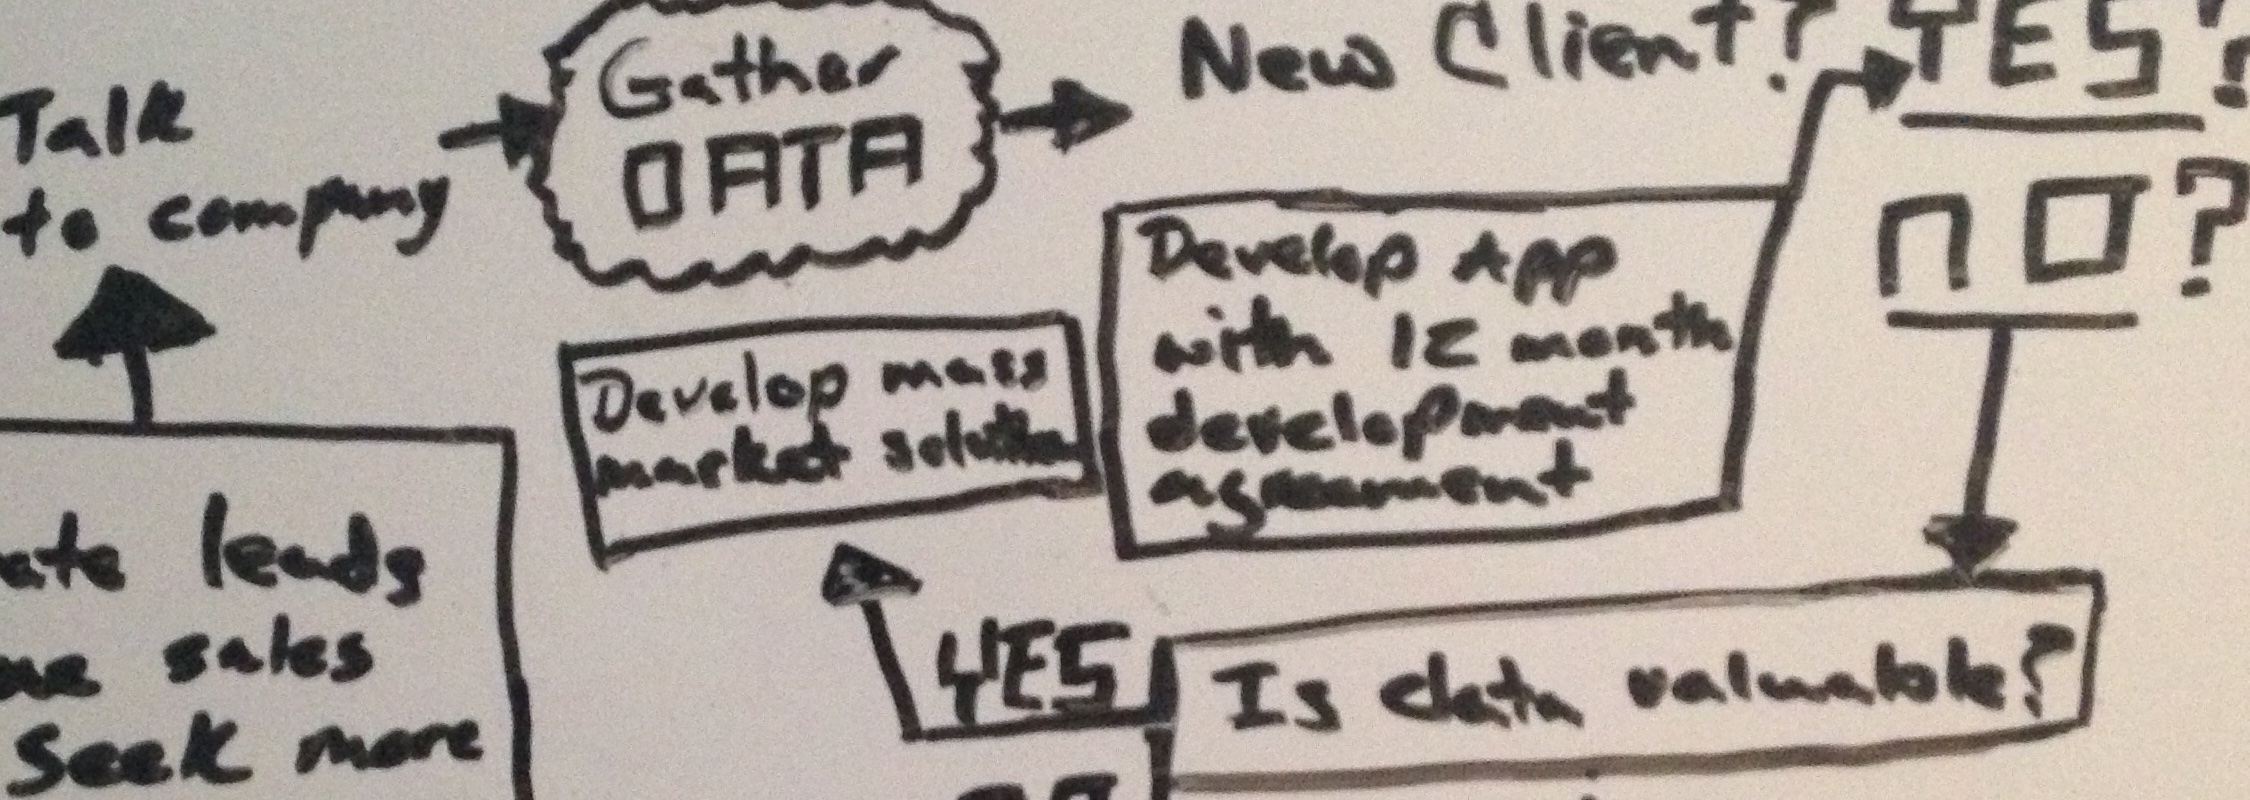 Talk
to company
Gather
DATA
New Client?
YES?
no?
Develop App
with 12 month
development
agreement
Develop mass
market solution
leads
sales
Seek more
YES
Is data valuable?